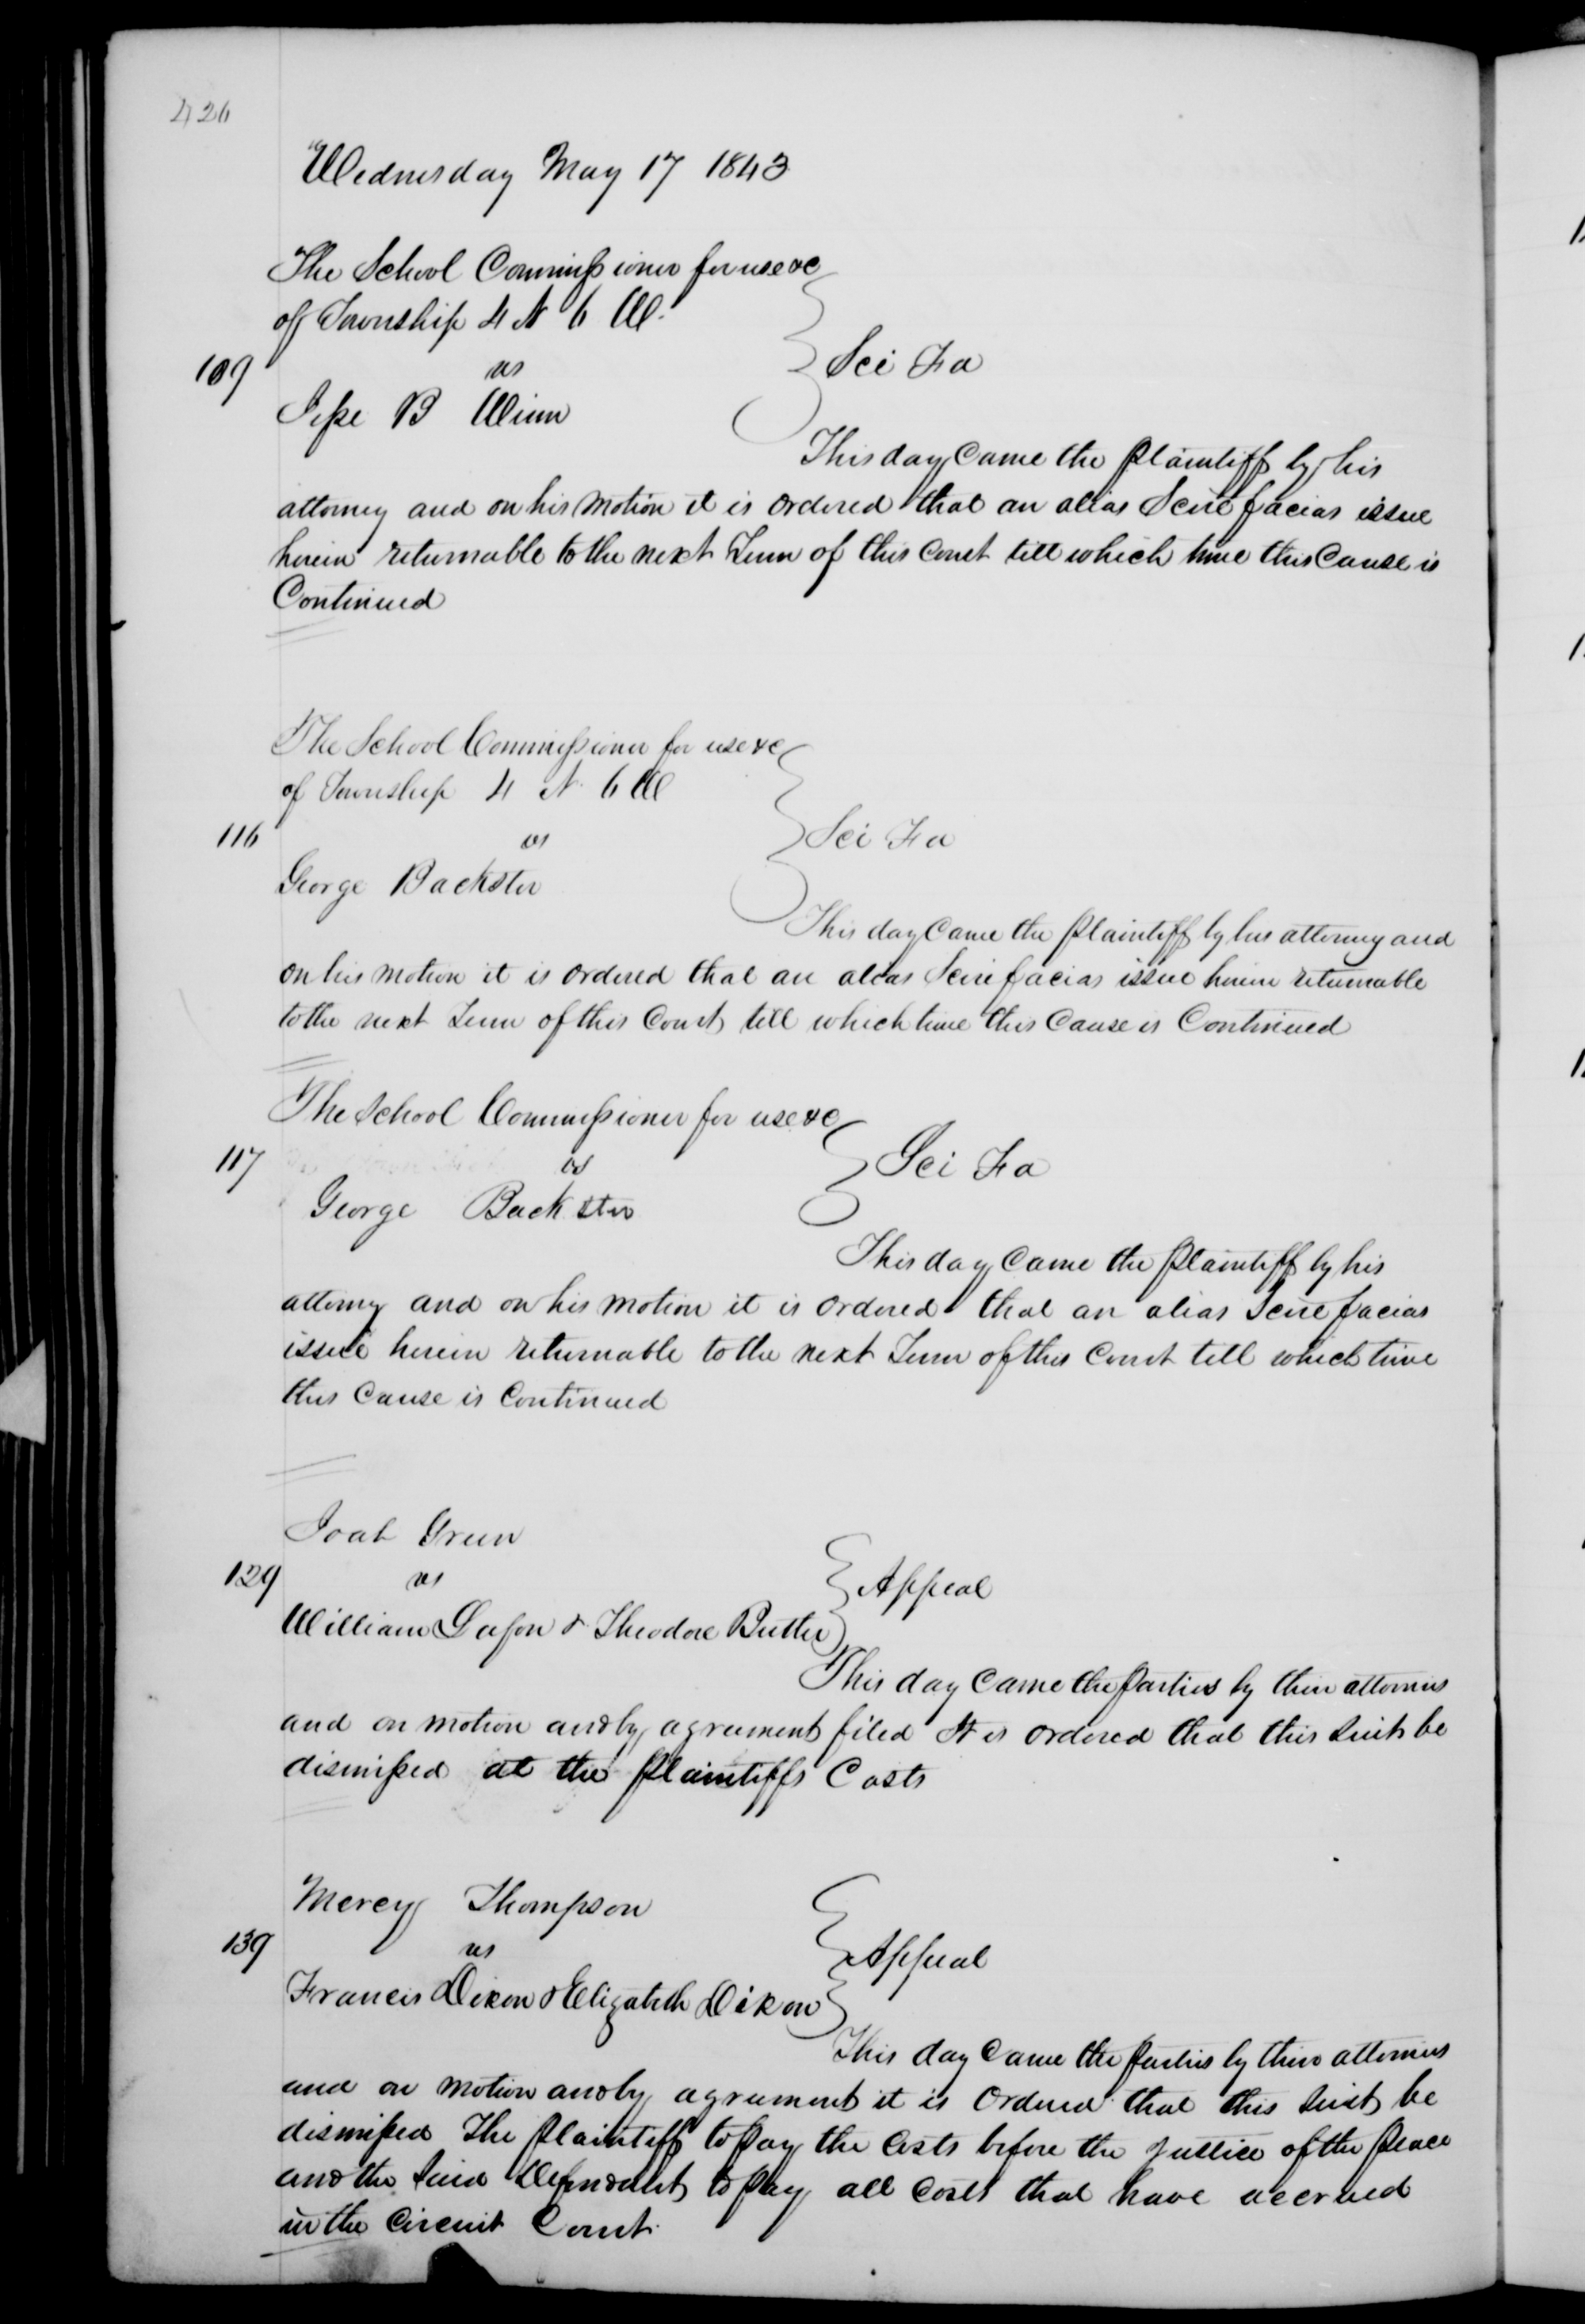 426
Wednesday May 17 1843
The School Commissioner for use &c
of Township 4 N 6 W.
109
vs
Sci Fa
Jesse B Winn
This day Came the plaintiff by his
attorney and on his motion it is ordered that an alias Scire facias issue
herein returnable to the next Term of this Court till which time this Cause is
Continued
The School Commissioner for use &c
of Township 4 N. 6 W
116
vs
Sci Fa
George Backster
This day Came the plaintiff by his attorney and
on his motion it is ordered that an alias Scire facias issue herein returnable
to the next Term of this Court till which time this Cause is Continued
The School Commissioner for use &c
117
vs
Sci Fa
George Backster
This day Came the plaintiff by his
attorney and on his motion it is ordered that an alias Scire facias
issue herein returnable to the next Term of this Court till which time
this Cause is Continued
Joab Green
129
vs
Appeal
William & Theodore Butler
This day Came the parties by their attornies
and on motion and by agreement filed It is ordered that this suit be
dismissed at the plaintiffs Costs
Mercy Thompson
139
vs
Appeal
Francis Dixon & Elizabeth Dixon
This day Came the parties by their attornies
and on motion and by agreement it is Ordered that this suit be
dismissed The plaintiff to pay the Costs before the justice of the peace
and the said Defendant to pay all Costs that have accrued
in the Circuit Court.